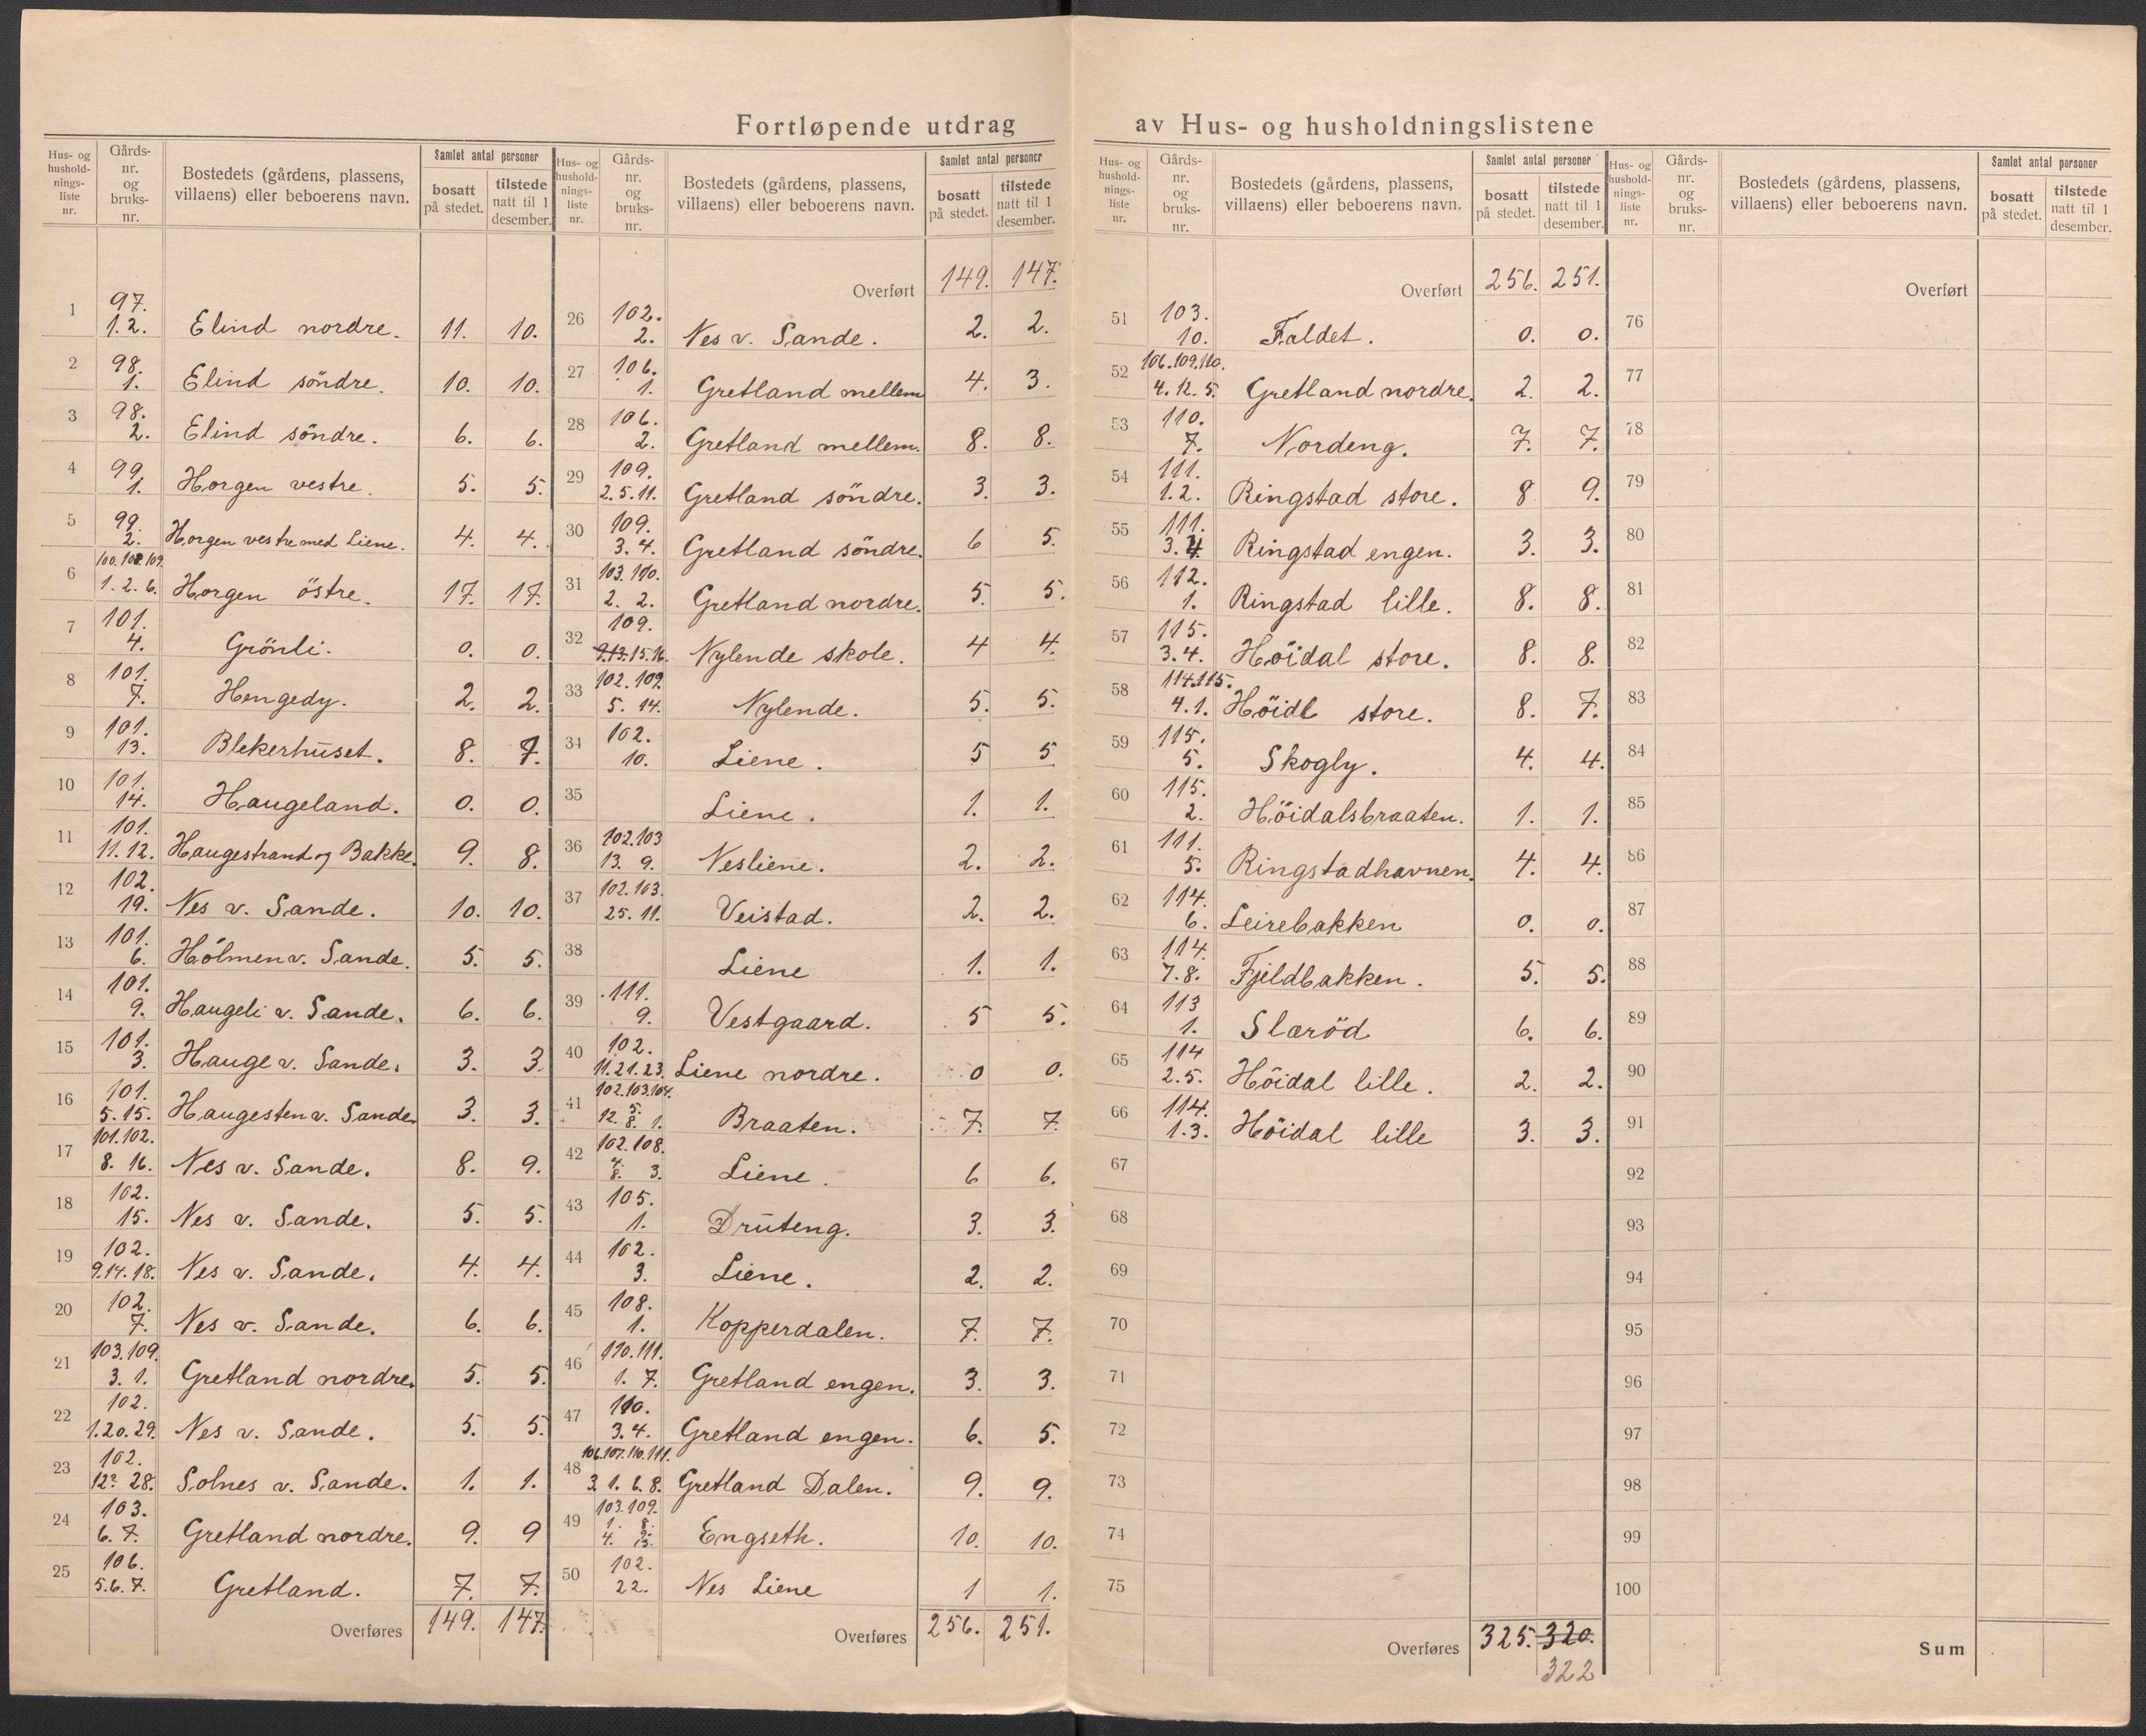 Fortløpende utdrag av Hus- og husholdningslistene
Hus- og husholdningsliste nr. | Gårdsnr. og bruksnr. | Bostedets (gårdens, plassens, villaens) eller beboerens navn. | Samlet antal personer: bosatt på stedet. | tilstede natt til 1 desember.
1 | 97. 1.2. | Elind nordre. | 11. | 10.
2 | 98. 1. | Elind söndre. | 10. | 10.
3 | 98. 2. | Elind söndre. | 6. | 6.
4 | 99. 1. | Horgen vestre. | 5. | 5.
5 | 99. 2. | Horgen vestre med Liene. | 4. | 4.
6 | 100. 108. 109. 1. 2. 6. | Horgen östre. | 17. | 17.
7 | 101. 4. | Grönli. | 0. | 0.
8 | 101. 7. | Hengedy. | 2. | 2.
9 | 101. 13. | Blekerhuset. | 8. | 7.
10 | 101. 14. | Haugeland. | 0. | 0.
11 | 101. 11. 12. | Haugestrand og Bakke. | 9. | 8.
12 | 102. 19. | Nes v. Sande. | 10. | 10.
13 | 101. 6. | Hólmen v. Sande. | 5. | 5.
14 | 101. 9. | Haugeli v. Sande. | 6. | 6.
15 | 101. 3. | Hauge v. Sande. | 3. | 3.
16 | 101. 5. 15. | Haugesten v. Sande. | 3. | 3.
17 | 101. 102. 8. 16. | Nes v. Sande. | 8. | 9.
18 | 102. 15. | Nes v. Sande. | 5. | 5.
19 | 102. 9. 14. 18. | Nes v. Sande. | 4. | 4.
20 | 102. 7. | Nes v. Sande. | 6. | 6.
21 | 103. 109. 3. 1. | Gretland nordre. | 5. | 5.
22 | 102. 1. 20. 29. | Nes v. Sande. | 5. | 5.
23 | 102. 12? 28. | Solnes v. Sande. | 1. | 1.
24 | 103. 6. 7. | Gretland nordre. | 9. | 9
25 | 106. 5. 6. 7. | Gretland. | 7. | 7.
Overføres | 149. | 147.
Hus- og husholdningsliste nr. | Gårdsnr. og bruksnr. | Bostedets (gårdens, plassens, villaens) eller beboerens navn. | Samlet antal personer: bosatt på stedet. | tilstede natt til 1 desember.
Overført | 149. | 147.
26 | 102. 2. | Nes v. Sande. | 2. | 2.
27 | 106. 1. | Gretland mellem | 4. | 3.
28 | 106. 2. | Gretland mellem. | 8. | 8.
29 | 109. 2. 5. 11. | Gretland söndre. | 3. | 3.
30 | 109. 3. 4. | Gretland söndre. | 6 | 5.
31 | 103. 110. 2. 2. | Gretland nordre. | 5. | 5.
32 | 109. 9. 13. 15. 16. | Nylende skole. | 4 | 4.
33 | 102. 109. 5. 14. | Nylende. | 5. | 5.
34 | 102. 10. | Liene. | 5 | 5
35 | Liene. | 1. | 1.
36 | 102. 103 13. 9. | Nesliene. | 2. | 2.
37 | 102. 103. 25. 11. | Veistad. | 2. | 2.
38 | Liene | 1. | 1.
39 | 111. 9. | Vestgaard. | 5 | 5.
40 | 102. 11. 21. 23. | Liene nordre. | 0 | 0.
41 | 102. 103. 104. 12. 5. 8. 1. | Braaten. | 7. | 7.
42 | 102. 108. 4. 8. 3. | Liene. | 6 | 6.
43 | 105. 1. | Druteng. | 3. | 3.
44 | 102. 3. | Liene. | 2. | 2.
45 | 108. 1. | Kopperdalen. | 7. | 7.
46 | 110. 111. 1. 7. | Gretland engen. | 3. | 3.
47 | 110. 3. 4. | Gretland engen. | 6. | 5.
48 | 106. 107. 110. 111. 3. 1. 6. 8. | Gretland Dalen. | 9. | 9.
49 | 103. 109. 1. 8. 4. | Engseth. | 10. | 10.
50 | 102. 22. | Nes Liene | 1 | 1.
Overføres | 256. | 251.
Hus- og husholdningsliste nr. | Gårdsnr. og bruksnr. | Bostedets (gårdens, plassens, villaens) eller beboerens navn. | Samlet antal personer: bosatt på stedet. | tilstede natt til 1 desember.
Overført | 256. | 251.
51 | 103. 10. | Faldet. | 0. | 0.
52 | 106. 109. 110. 4. 12. 5. | Gretland nordre. | 2. | 2.
53 | 110. 7. | Nordeng. | 7. | 7.
54 | 111. 1. 2. | Ringstad store. | 8 | 9.
55 | 111. 3. 4. | Ringstad engen. | 3. | 3.
56 | 112. 1. | Ringstad lille. | 8. | 8.
57 | 115. 3. 4. | Höidal store. | 8. | 8.
58 | 114. 115. 4. 1. | Höidl store. | 8. | 7.
59 | 115. 5. | Skogly. | 4. | 4.
60 | 115. 2. | Höidalsbraaten. | 1. | 1.
61 | 111. 5. | Ringstadhavnen. | 4. | 4.
62 | 114. 6. | Leirebakken | 0. | 0.
63 | 114. 7. 8. | Fjeldbakken. | 5. | 5.
64 | 113 1. | Slaröd | 6. | 6.
65 | 114 2. 5. | Höidal lille. | 2. | 2.
66 | 114. 1. 3. | Höidal lille | 3. | 3.
67
68
69
70
71
72
73
74
75
Overføres | 325. | 320.
322
Hus- og husholdningsliste nr. | Gårdsnr. og bruksnr. | Bostedets (gårdens, plassens, villaens) eller beboerens navn. | Samlet antal personer: bosatt på stedet. | tilstede natt til 1 desember.
Overført
76
77
78
79
80
81
82
83
84
85
86
87
88
89
90
91
92
93
94
95
96
97
98
99
100
Sum